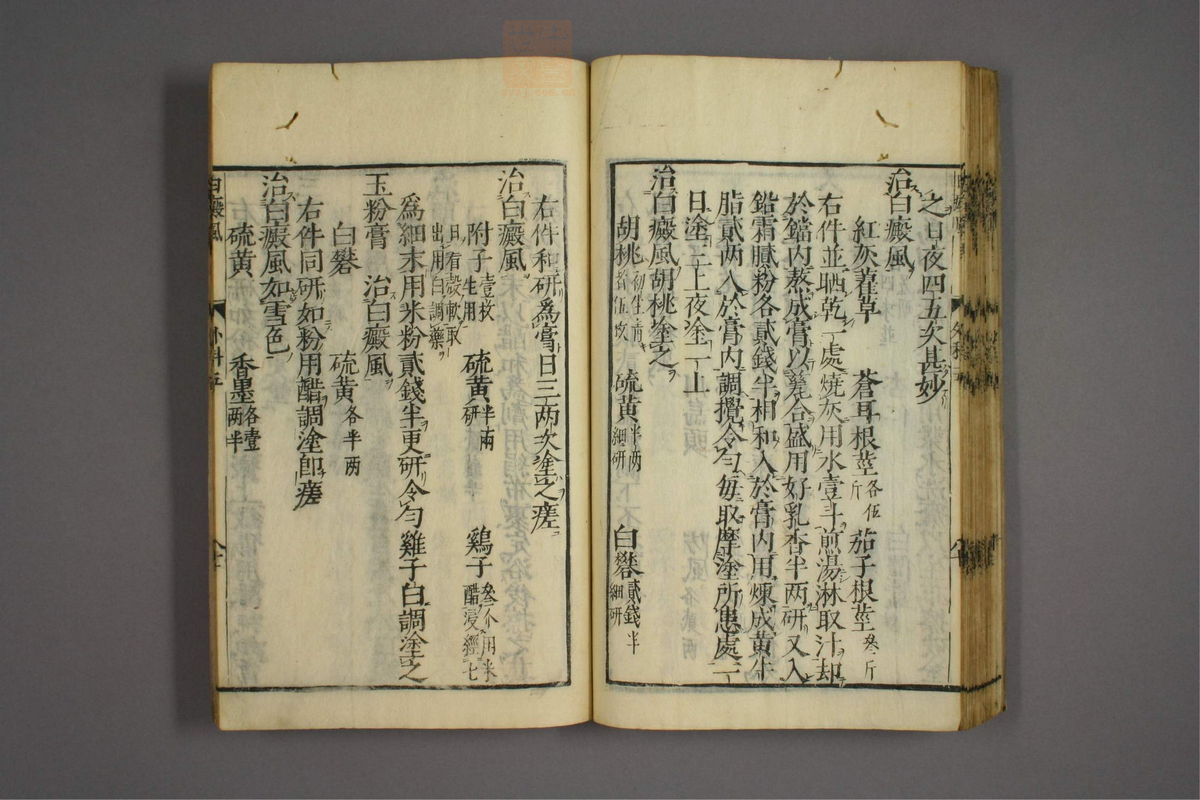 之日夜四五次甚妙
治白癜風
紅灰藋草 蒼耳根莖各伍斤 茄子根莖叁斤
右件並晒乾一處燒灰用水壹斗煎湯淋取汁却
於鐺内熬成膏以甆合盛用好乳香半两研又入
鉛霜膩粉各貳錢半相和入於膏内用煉成黄牛
脂貳两入於膏内調攪令勻每取摩塗所患處一
日塗三上夜塗一上
治白癜風胡桃塗之
胡桃初生青者伍枚 硫黄半两細研 白礬貳錢半細研
右件和研爲膏日三两次塗之瘥
治白癜風
附子壹枚生用 硫黄半兩研 鷄子叁个用米醋浸經七
日看殼軟取出用白調藥
爲細末用米粉貳錢半更研令勻雞子白調塗之
玉粉膏 治白癜風
白礬 硫黄各半两
右件同研如粉用醋調塗即瘥
治白癜風如雪色
硫黄 香墨各壹两半
白癜風 外科五